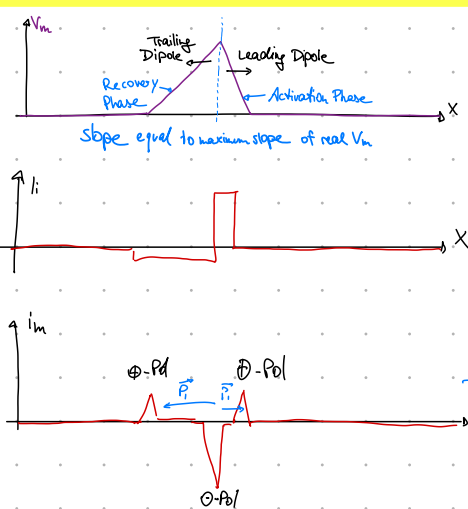 Vm
Trailing
Dipole
Leading Dipole
Recovery
Phase
Activation Phase
X
slope equal to maximum slope of real Vm
Ii
X
im
⊕-Pol
⊕-Pol
P⃗i
P⃗i
⊖-Pol